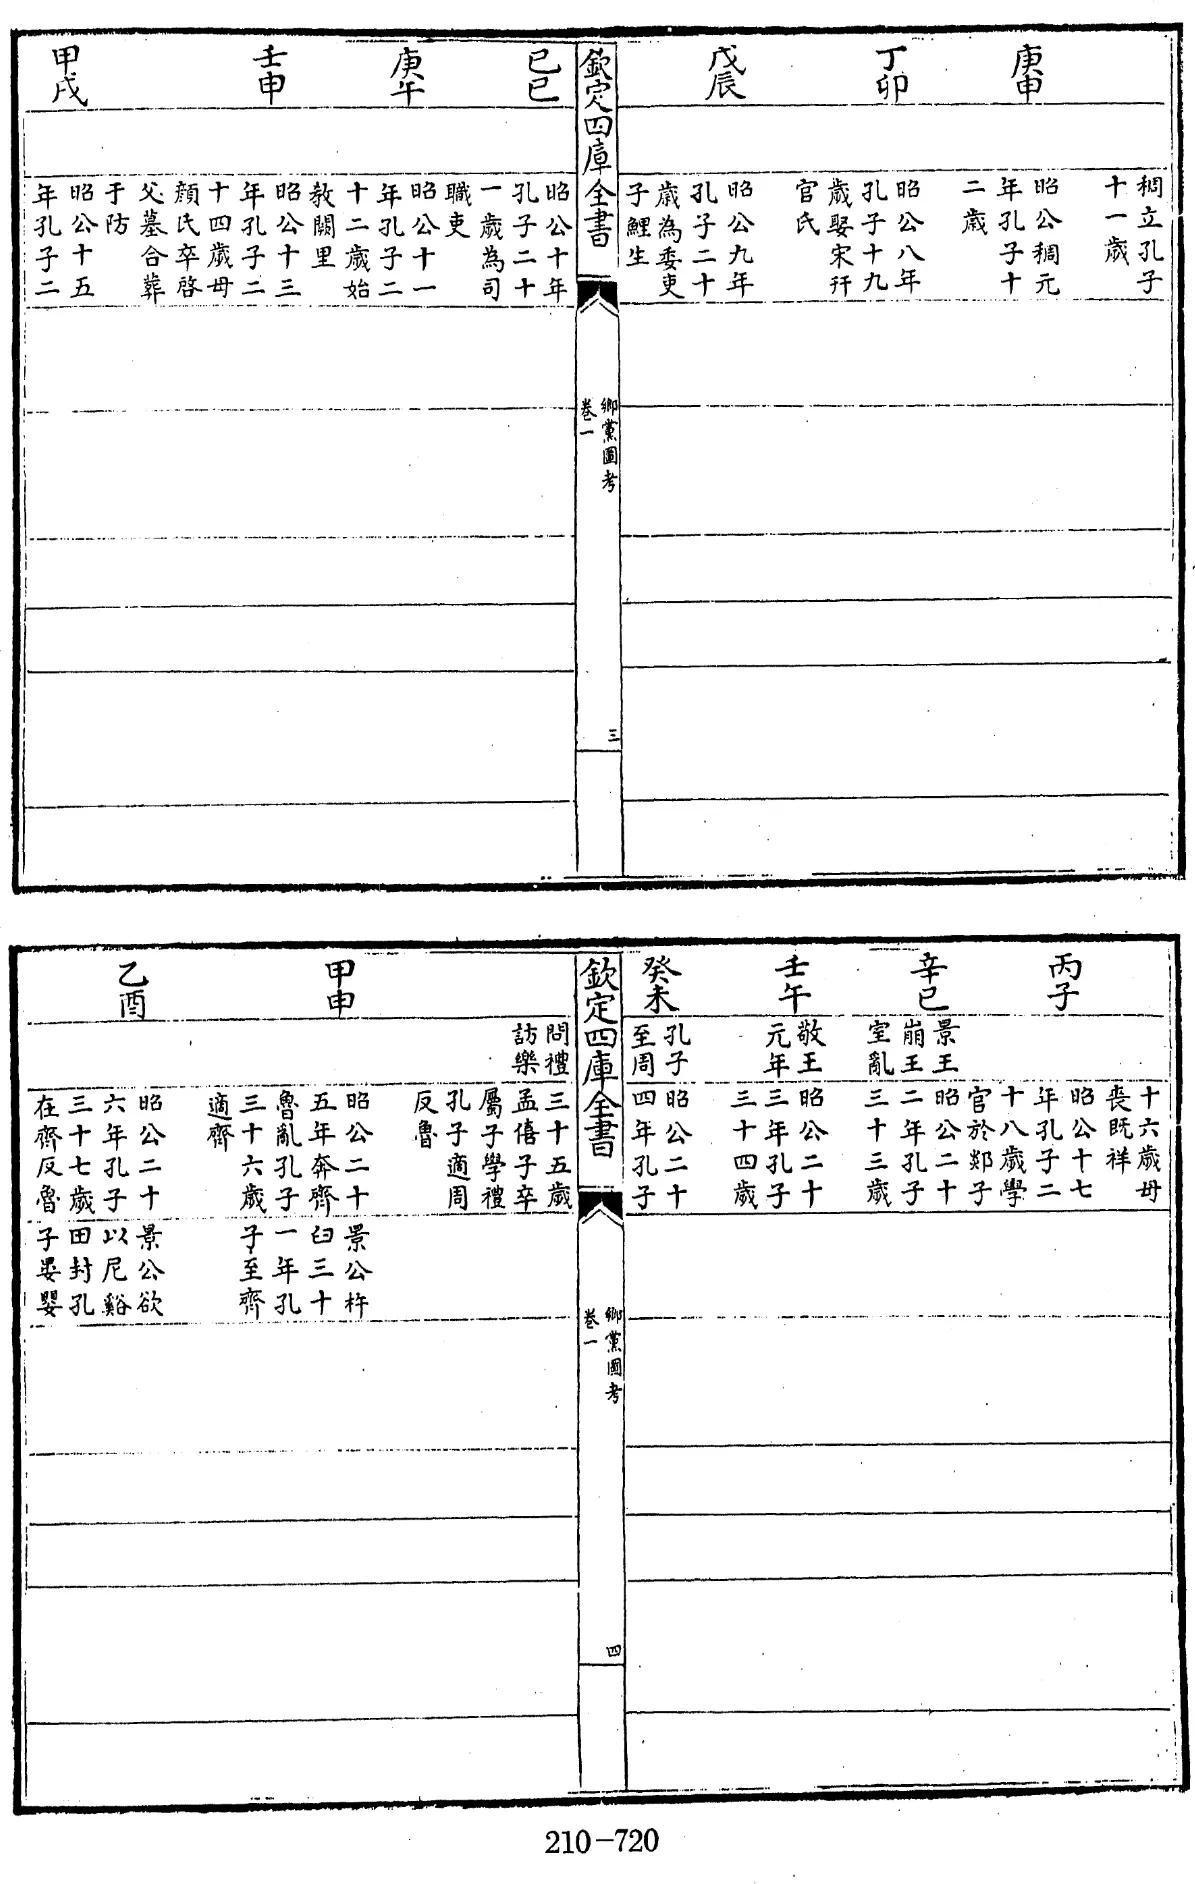 庚申
丁卯
戊辰
稠立孔子
十一歲
昭公稠元
年孔子十
二歲
昭公八年
孔子十九
歲娶宋幵
官氏
昭公九年
孔子二十
歲為委吏
子鯉生
欽定四庫全書
鄉黨圖考
卷一
三
己巳
庚午
壬申
甲戌
昭公十年
孔子二十
一歲為司
職吏
昭公十一
年孔子二
十二歲始
教闕里
昭公十三
年孔子二
十四歲母
顏氏卒啓
父墓合葬
于防
昭公十五
年孔子二
丙子
辛巳
壬午
癸未
景王
崩王
室亂
敬王
元年
孔子
至周
十六歲母
喪既祥
昭公十七
年孔子二
十八歲學
官於郯子
昭公二十
二年孔子
三十三歲
昭公二十
三年孔子
三十四歲
昭公二十
四年孔子
欽定四庫全書
鄉黨圖考
卷一
四
甲申
乙酉
問禮
訪樂
三十五歲
孟僖子卒
屬子學禮
孔子適周
反魯
昭公二十
五年奔齊
魯亂孔子
三十六歲
適齊
昭公二十
六年孔子
三十七歲
在齊反魯
景公杵
臼三十
一年孔
子至齊
景公欲
以尼谿
田封孔
子晏嬰
210-720